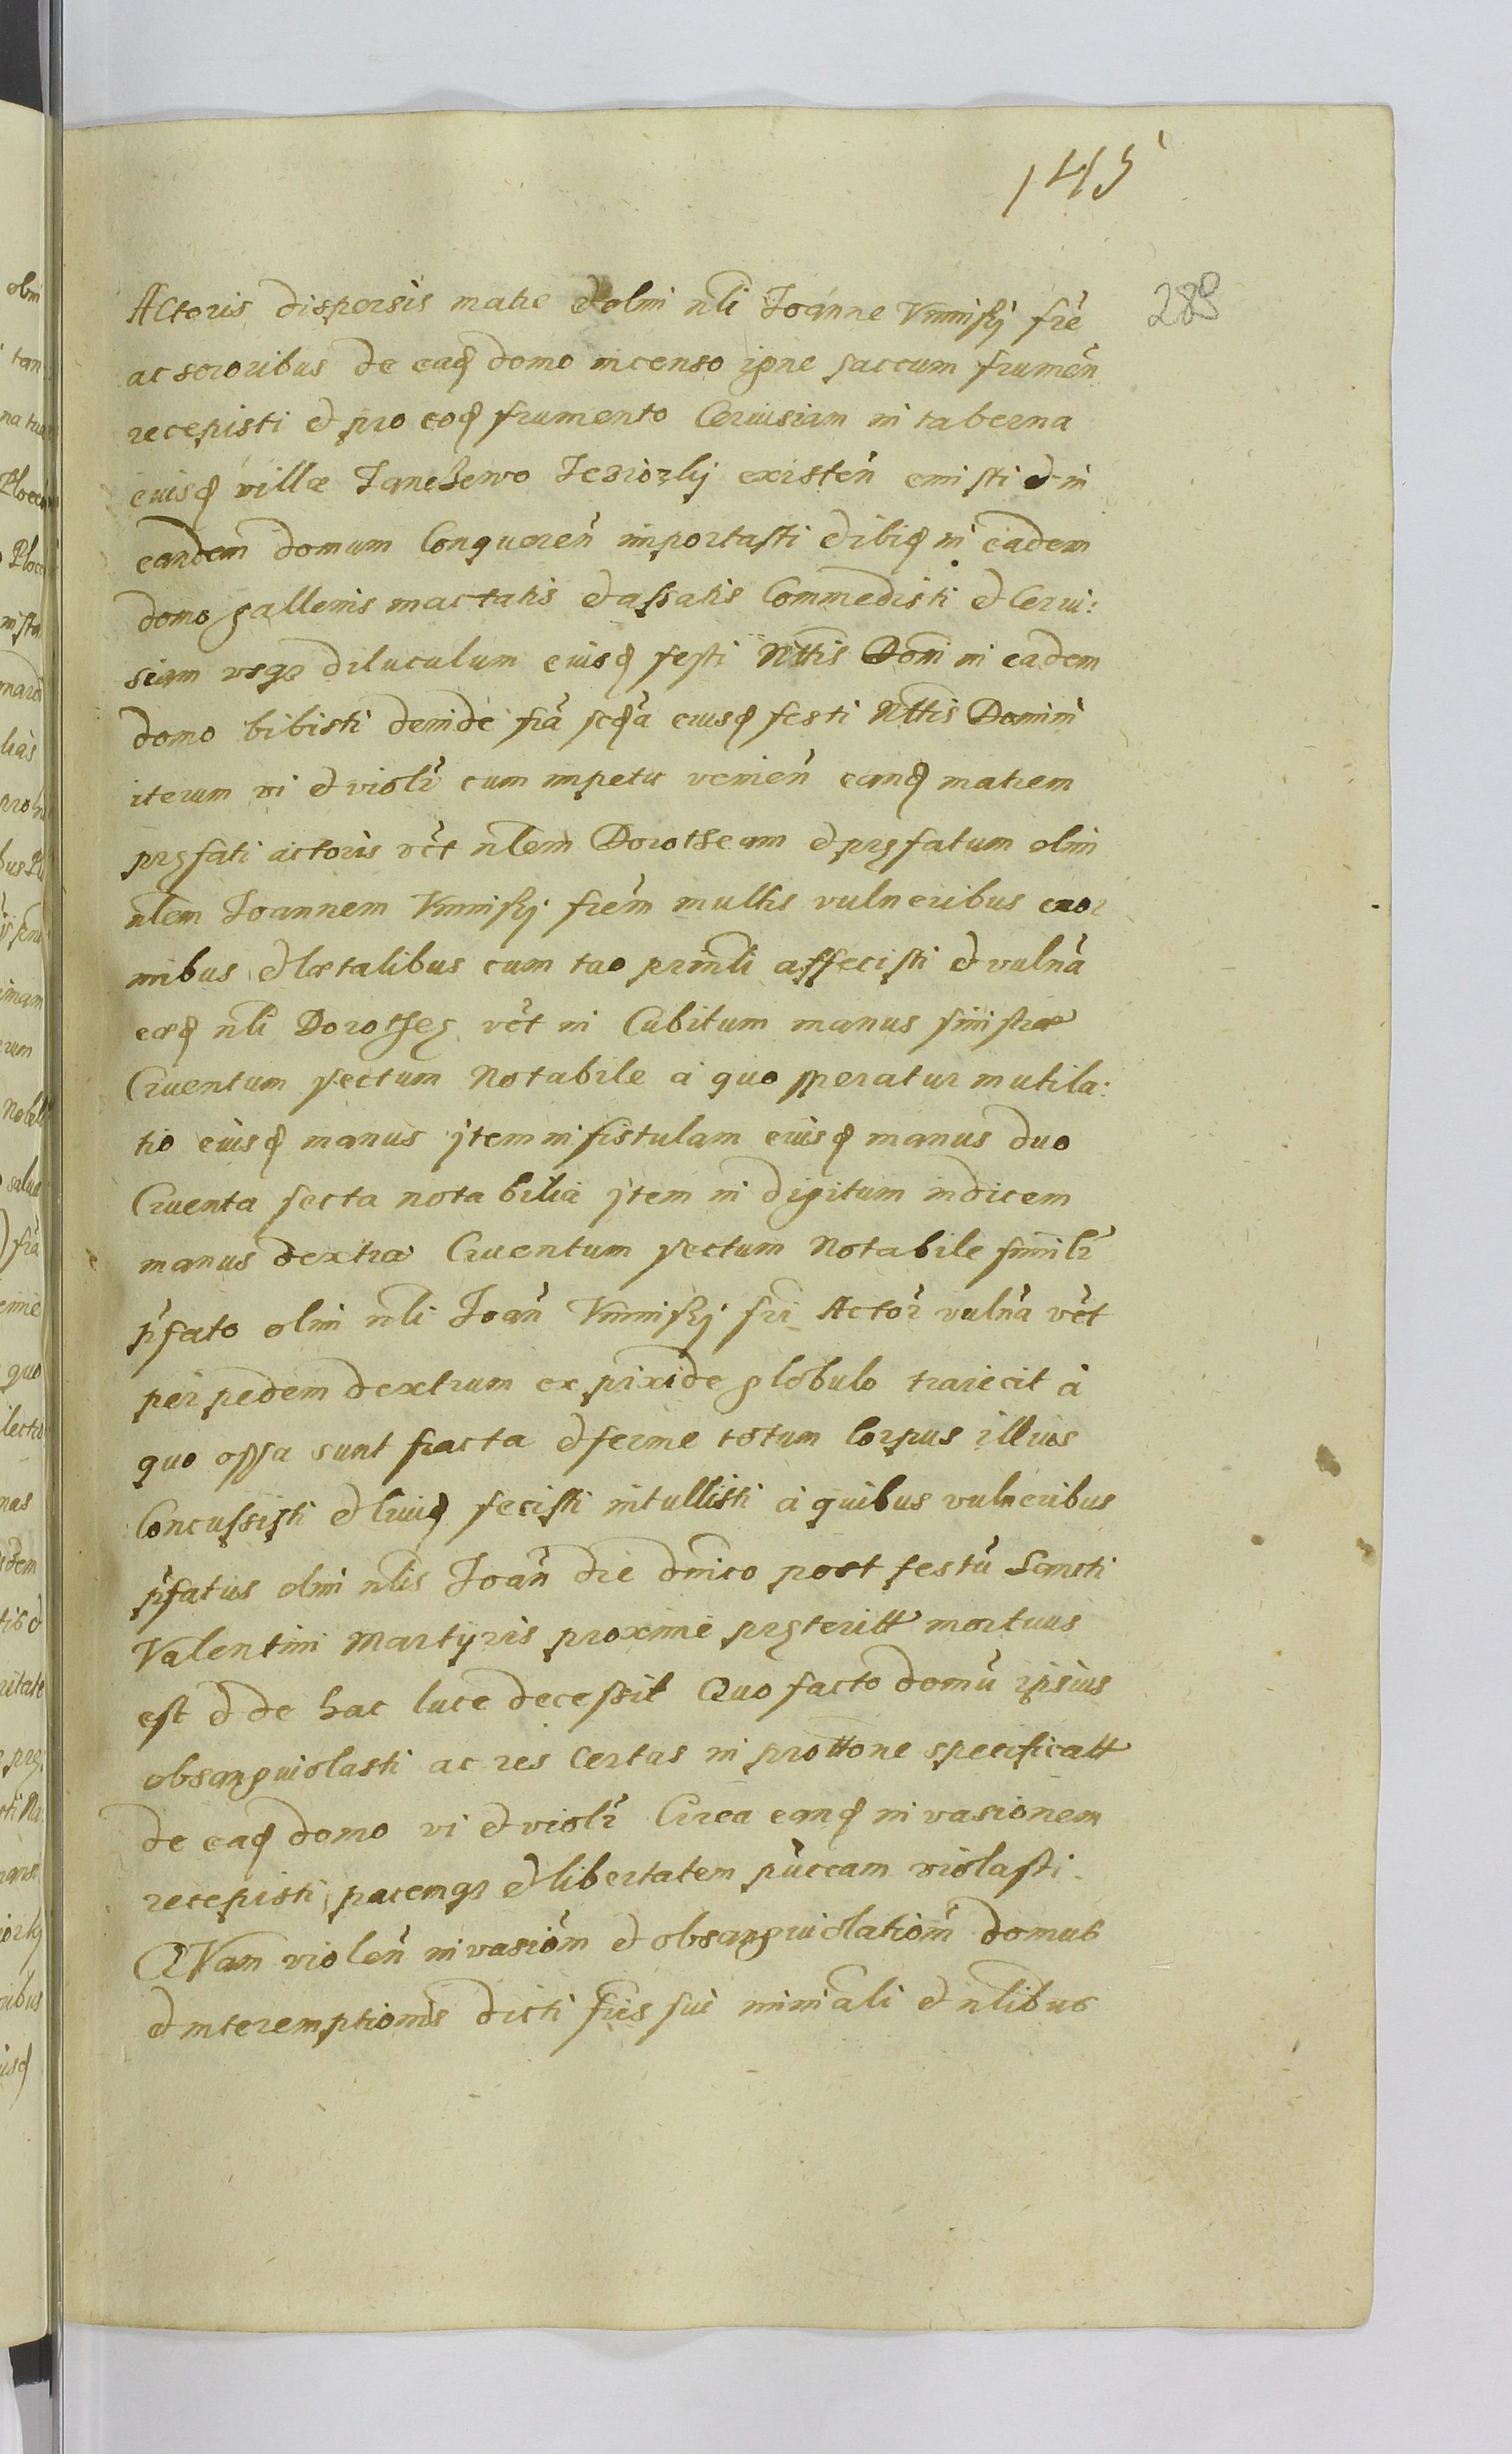 145
289
Actoris dispersis matre et olim nli Joanne Vminskj fre
ac sororibus de eadq domo incenso igne saccum frumen
recepisti et pro eodq frumento Ceruisiam in taberna
eiusdq villæ Janchewo Jeziorlij existen emisti et in
eandem domum Conqueren importasti et ibidq in eadem
domo gallenis mactatis et assatis Commedisti et Cerui:
siam usq diluculum eiusdq festi Nttis Domi in eadem
domo bibisti deinde fria sedqa eiusdq festi Nttis Domini
iterum vi et violr cum impetu venien eandq matrem
pręfati actoris vct nlem Dorotheam et pręfatum olim
nlem Joannem Vminskj frem multis vulneribus enor
mibus et lætalibus cum tuo prinli affecisti et vulna
eædq nli Dorotheę vct in Cubitum manus sinistræ
Cruentum sectum Notabile a quo speratur mutila:
tio eiusdq manus jtem in fistulam eiusdq manus duo
Cruenta secta notabilia jtem in digitum indicem
manus dextræ Cruentum sectum Notabile similr
pfato olim nli Joan Vminskj fri Actor vulna vct
per pedem dextrum ex pixide globulo traiecit a
quo ossa sunt fracta et ferme totum Corpus illius
Concussisti et liuidq fecisti intullisti a quibus vulneribus
pfatus olim nlis Joan die dnico post festu Sancti
Valentini Martyris proxime pręteritt mortuus
est et de hac luce decessit Quo facto domu ipsius
obsanguiolasti ac res certas in prottone specificatt
de eadq domo vi et violr Circa eandq invasionem
recepisti pacemq et libertatem puccam violasti
QVam violen invasiom et obsanguiolatiom domus
et interemptionis dicti fris sui minali et nlibus